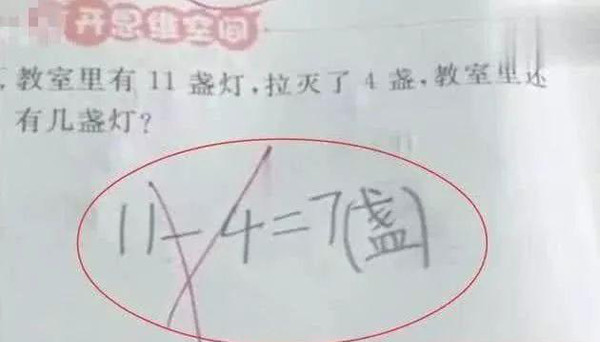 开思维空间
教室里有 11 盏灯,拉灭了 4 盏,教室里还
有几盏灯?
11-4=7(盏)